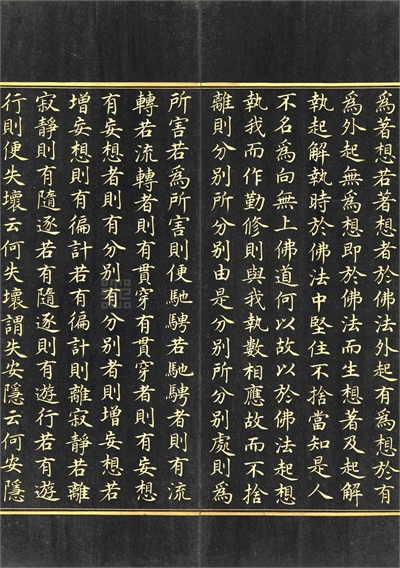 為著想若著想者於佛法外起有為想於有
為外起無為想即於佛法而生想著及起解
執起解執時於佛法中堅住不捨當知是人
不名為向無上佛道何以故以於佛法起想
執我而作勤修則與我執數相應故而不捨
離則分別所分別由是分別所分別處則為
所害若為所害則便馳騁若馳騁者則有流
轉若流轉者則有貫穿有貫穿者則有妄想
有妄想者則有分別有分別者則增妄想若
增妄想則有徧計若有徧計則離寂靜若離
寂靜則有隨逐若有隨逐則有遊行若有遊
行則便失壞云何失壞謂失安隱云何安隱